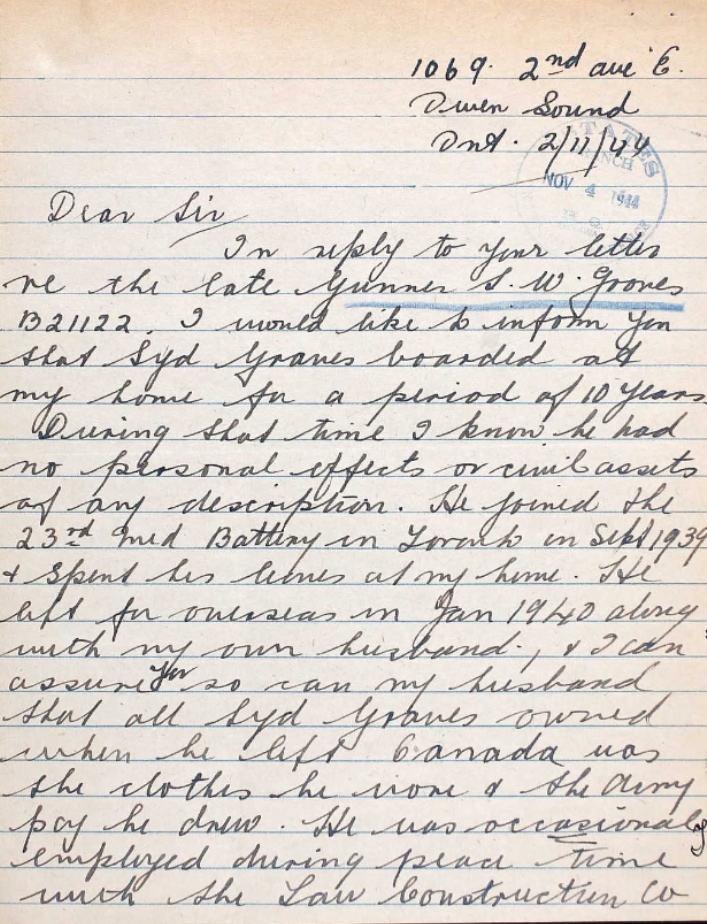 1069. 2nd ave E.
Owen Sound
Ont. 2/11/44
ESTATES
BRANCH
NOV 4 1944
Dear Sir
In reply to your letter
re the late Gunner S. W. Groves
B21122. I would like to inform you
that Syd Graves boarded at
my home for a period of 10 years.
During that time I know he had
no personal effects or civil assets
of any description. He joined the
23rd Med Battery in Toronto in Sept 1939
& spent his leaves at my home. He
left for overseas in Jan 1940 along
with my own husband., & I can
assure you so can my husband
that all Syd Graves owned
when he left Canada was
the clothes he wore & the Army
pay he drew. He was occasionaly
employed during peace time
with the Law Construction Co